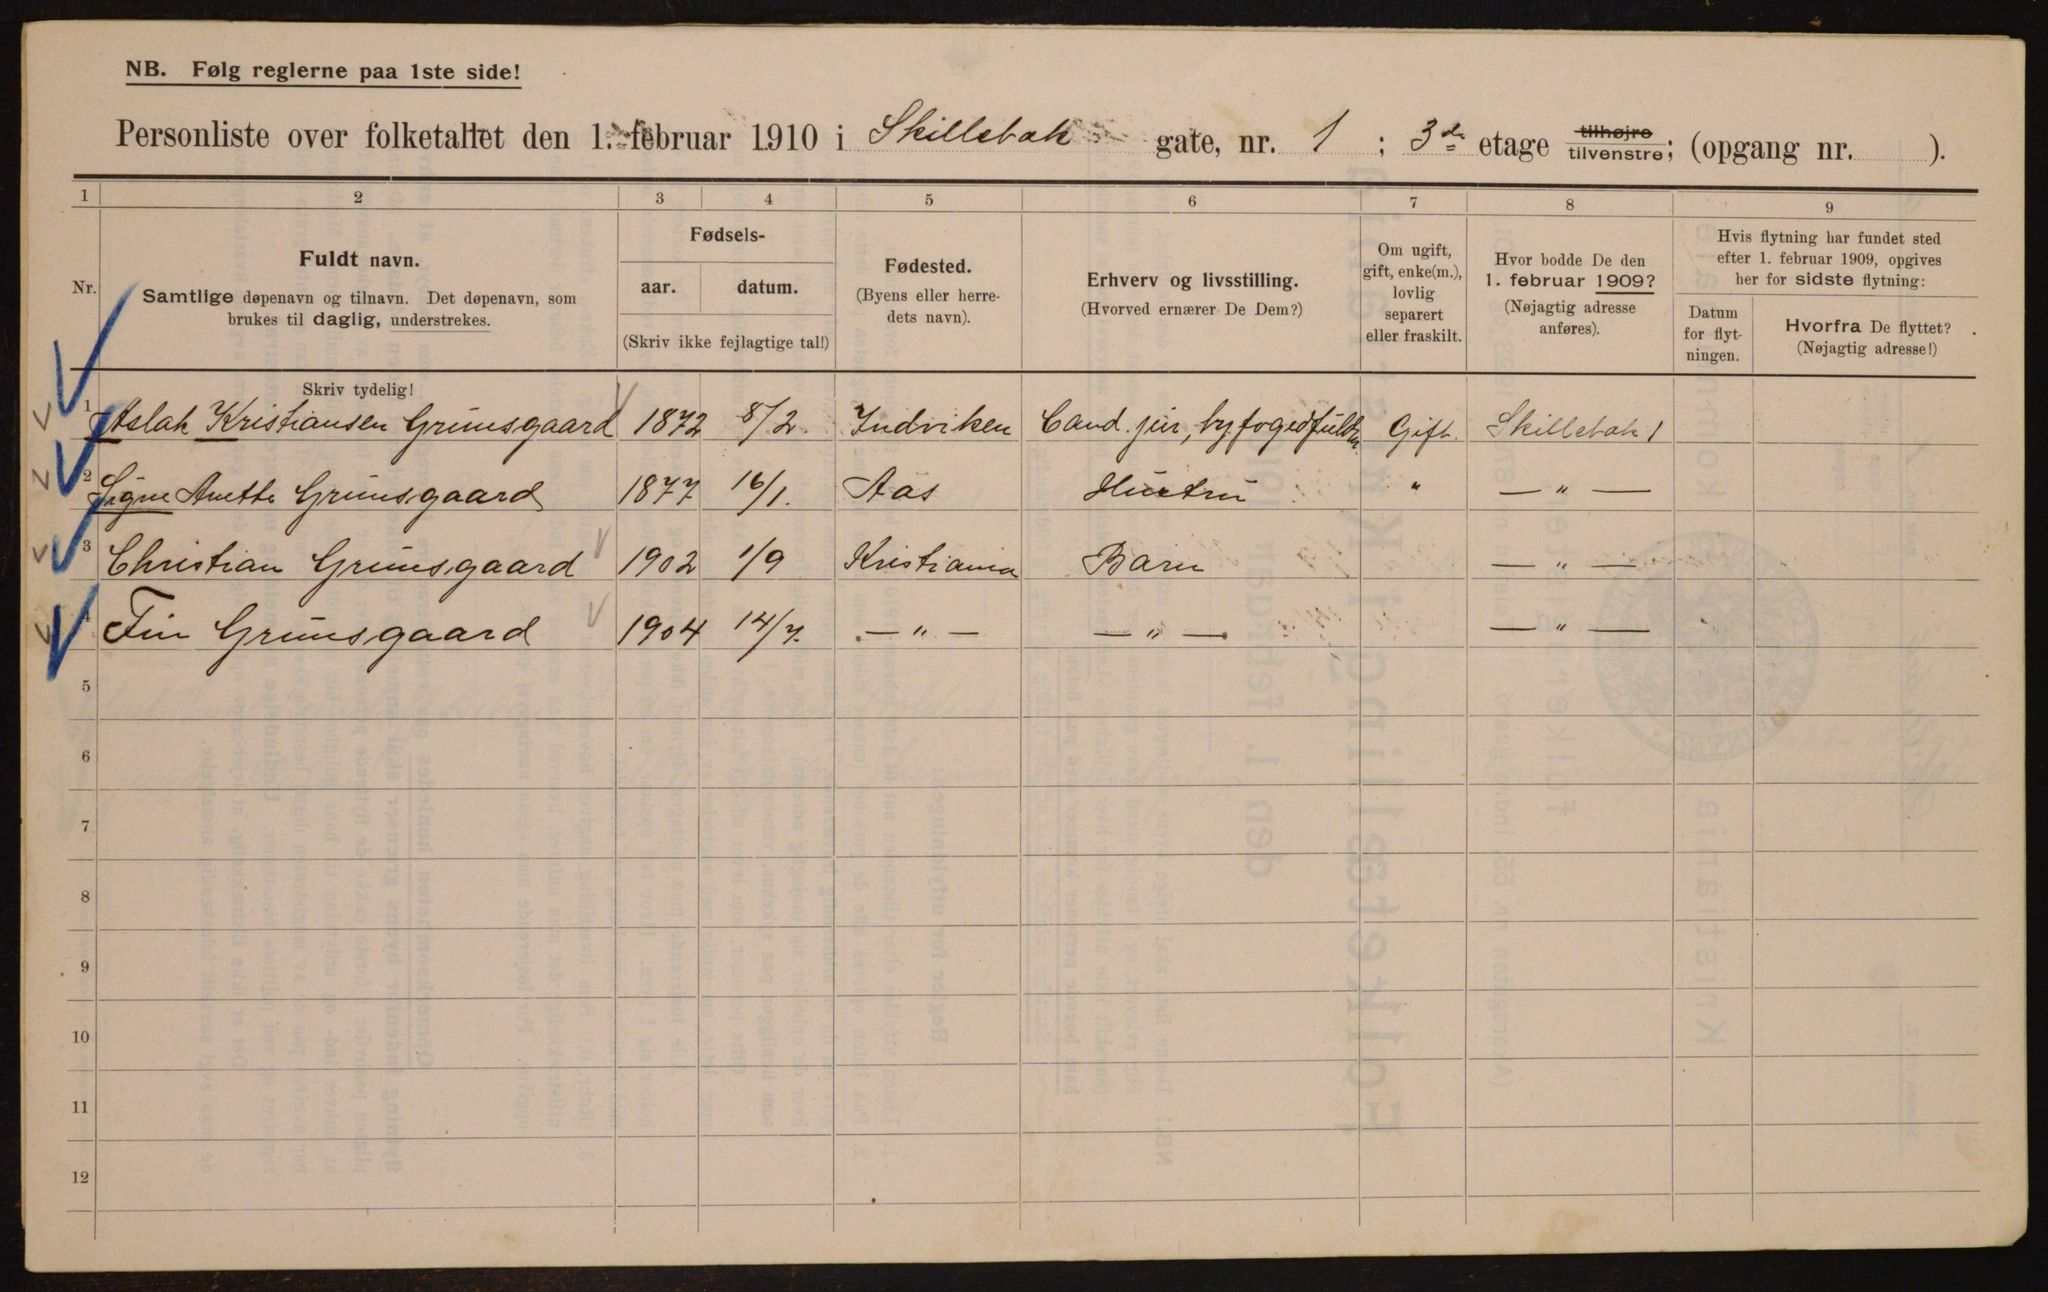 NB. Følg reglerne paa 1ste side!
Personliste over folketallet den 1. februar 1910 i Skillebæk gate, nr. 1 ; 3de etage tilhøjre tilvenstre; (opgang nr. ).
1 2 3 4 5 6 7 8 9
Nr.
Fuldt navn.
Samtlige døpenavn og tilnavn. Det døpenavn, som
brukes til daglig, understrekes.
Fødsels-
aar. datum.
(Skriv ikke fejlagtige tal!)
Fødested.
(Byens eller herre-
dets navn).
Erhverv og livsstilling.
(Hvorved ernærer De Dem?)
Om ugift,
gift, enke(m.),
lovlig
separert
eller fraskilt.
Hvor bodde De den
1. februar 1909?
(Nøjagtig adresse
anføres).
Hvis flytning har fundet sted
efter 1. februar 1909, opgives
her for sidste flytning:
Datum
for flyt-
ningen.
Hvorfra De flyttet?
(Nøjagtig adresse!)
Skriv tydelig!
1 Aslak Kristiansen Grimsgaard 1872 8/2. Indviken Cand. jur, byfogedfuldm Gift. Skillebæk 1
2 Signe Anette Grimsgaard 1877 16/1. Aas Hustru " — " —
3 Christian Grimsgaard 1902 1/9 Kristiania Barn — " —
4 Fin Grimsgaard 1904 14/7. — " — — " — — " —
5
6
7
8
9
10
11
12